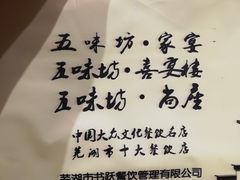 五味坊·家宴
五味坊·喜宴楼
五味坊·尚座
中国大众文化餐饮名店
芜湖市十大餐饮店
芜湖市书跃餐饮管理有限公司